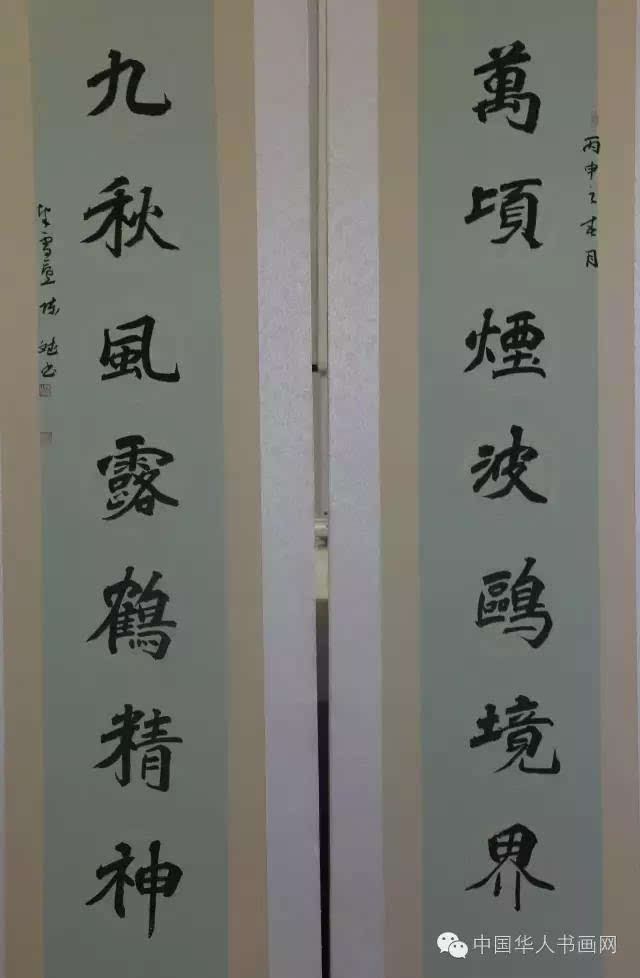 萬頃煙波鷗境界
丙申之春月
九秋風露鶴精神
雪堂 陳 書
中国华人书画网